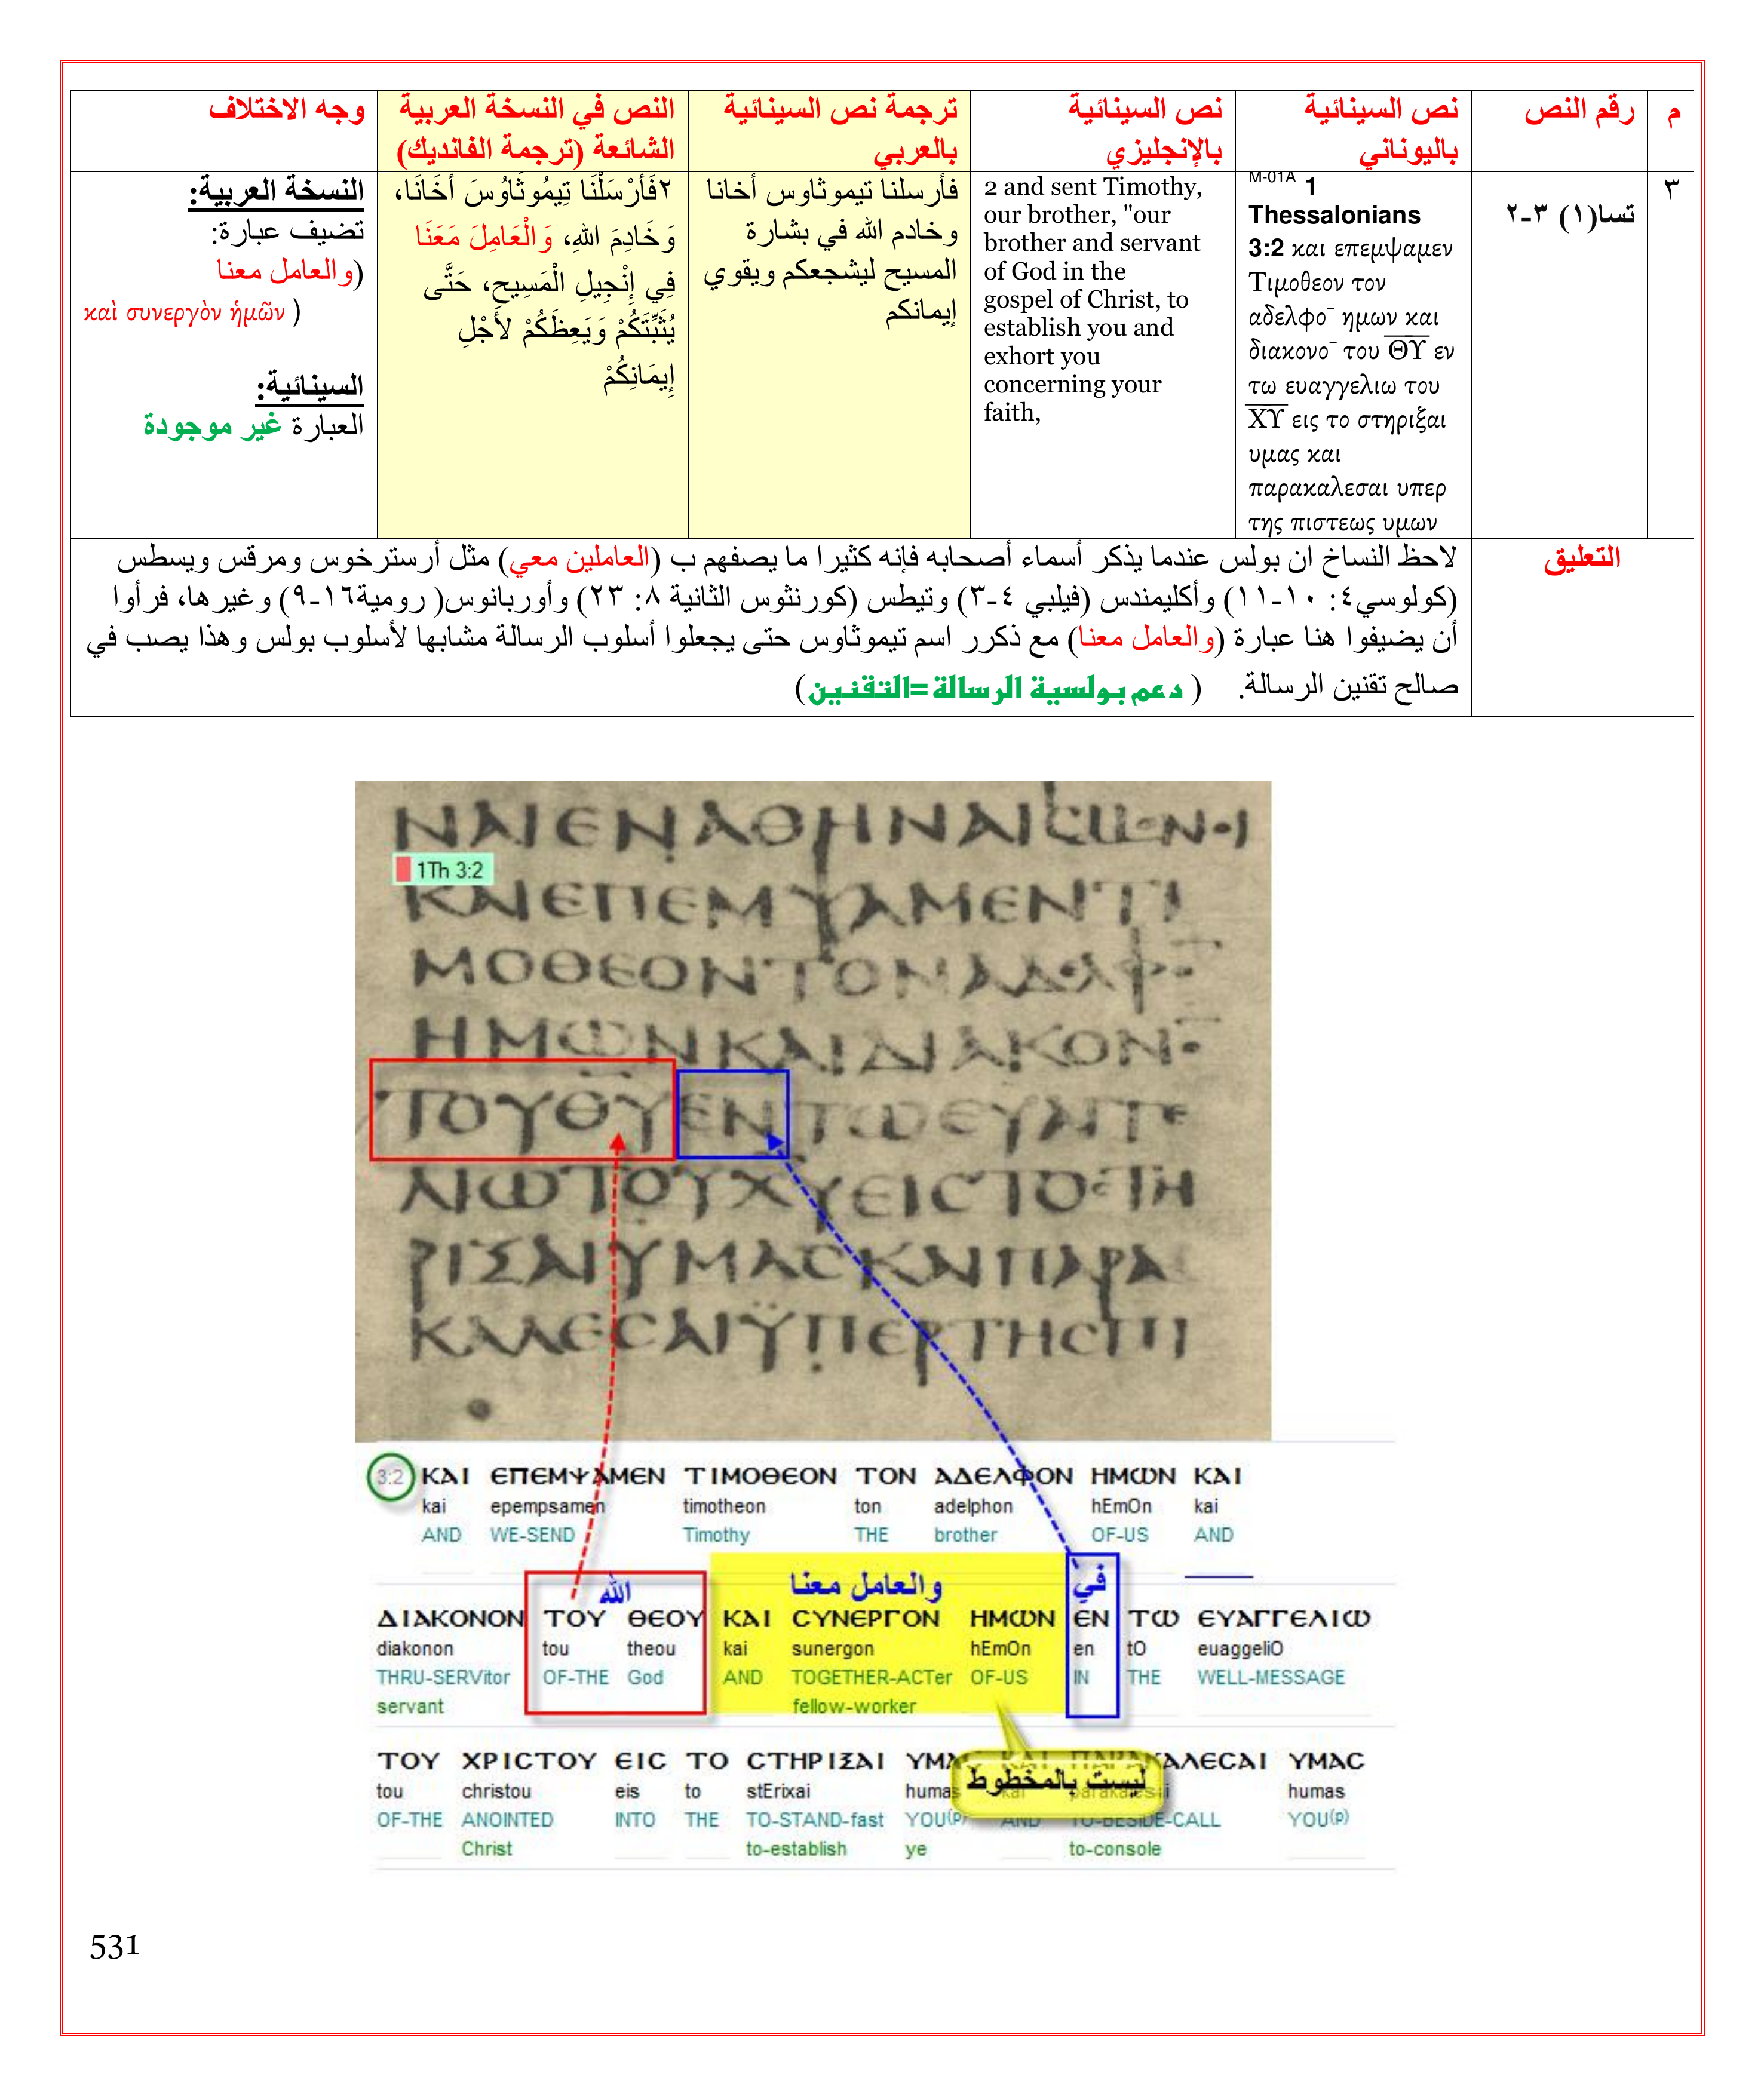 م
رقم النص
نص السينائية
باليوناني
نص السينائية
بالإنجليزي
ترجمة نص السينائية
بالعربي
النص في النسخة العربية
الشائعة (ترجمة الفانديك)
وجه الاختلاف
٣
تسا(١) ٣-٢
M-01A 1
Thessalonians
3:2 και επεμψαμεν
Τιμοθεον τον
αδελφο¯ ημων και
διακονο¯ του ΘΥ εν
τω ευαγγελιω του
ΧΥ εις το στηριξαι
υμας και
παρακαλεσαι υπερ
της πιστεως υμων
2 and sent Timothy,
our brother, "our
brother and servant
of God in the
gospel of Christ, to
establish you and
exhort you
concerning your
faith,
فأرسلنا تيموثاوس أخانا
وخادم الله في بشارة
المسيح ليشجعكم ويقوي
إيمانكم
٢فَأَرْسَلْنَا تِيمُوثَاوُسَ أَخَانَا،
وَخَادِمَ اللهِ، وَالْعَامِلَ مَعَنَا
فِي إِنْجِيلِ الْمَسِيحِ، حَتَّى
يُثَبِّتَكُمْ وَيَعِظَكُمْ لأَجْلِ
إِيمَانِكُمْ
النسخة العربية:
تضيف عبارة:
(والعامل معنا
καὶ συνεργὸν ἡμῶν )
السينائية:
العبارة غير موجودة
التعليق
لاحظ النساخ ان بولس عندما يذكر أسماء أصحابه فإنه كثيرا ما يصفهم ب (العاملين معي) مثل أرسترخوس ومرقس ويسطس
(كولوسي٤: ١٠-١١) وأكليمندس (فيلبي ٤-٣) وتيطس (كورنثوس الثانية ٨: ٢٣) وأوربانوس( رومية١٦-٩) وغيرها، فرأوا
أن يضيفوا هنا عبارة (والعامل معنا) مع ذكرر اسم تيموثاوس حتى يجعلوا أسلوب الرسالة مشابها لأسلوب بولس وهذا يصب في
صالح تقنين الرسالة. ( دعم بولسية الرسالة=التقنين)
ΝΑΙΕΝΑΘΗΝΑΙC
1Th 3:2
ΚΑΙΕΠΕΜΨΑΜΕΝΤΙ
ΜΟΘΕΟΝΤΟΝΑΔΕΛΦΟ
ΗΜΩΝΚΑΙΔΙΑΚΟΝΟ
ΤΟΥΘΥΕΝΤΩΕΥΑΓΓΕ
ΛΙΩΤΟΥΧΥΕΙCΤΟCΤΗ
ΡΙΞΑΙΥΜΑCΚΑΙΠΑΡΑ
ΚΑΛΕCΑΙΫΠΕΡΤΗCΠΙ
3:2 ΚΑΙ ΕΠΕΜΨΑΜΕΝ ΤΙΜΟΘΕΟΝ ΤΟΝ ΑΔΕΛΦΟΝ ΗΜΩΝ ΚΑΙ
kai epempsamen timotheon ton adelphon hEmOn kai
AND WE-SEND Timothy THE brother OF-US AND
الله والعامل معنا في
ΔΙΑΚΟΝΟΝ ΤΟΥ ΘΕΟΥ ΚΑΙ CΥΝΕΡΓΟΝ ΗΜΩΝ ΕΝ ΤΩ ΕΥΑΓΓΕΛΙΩ
diakonon tou theou kai sunergon hEmOn en tO euaggeliO
THRU-SERVitor OF-THE God AND TOGETHER-ACTer OF-US IN THE WELL-MESSAGE
servant fellow-worker
ΤΟΥ ΧΡΙCΤΟΥ ΕΙC ΤΟ CΤΗΡΙΞΑΙ ΥΜΑC ΚΑΙ ΠΑΡΑΚΑΛΕCΑΙ ΥΜΑC
ليست بالمخطوط
tou christou eis to stErixai humas kai parakalesai humas
OF-THE ANOINTED INTO THE TO-STAND-fast YOU(p) AND TO-BESIDE-CALL YOU(p)
Christ to-establish ye to-console
531